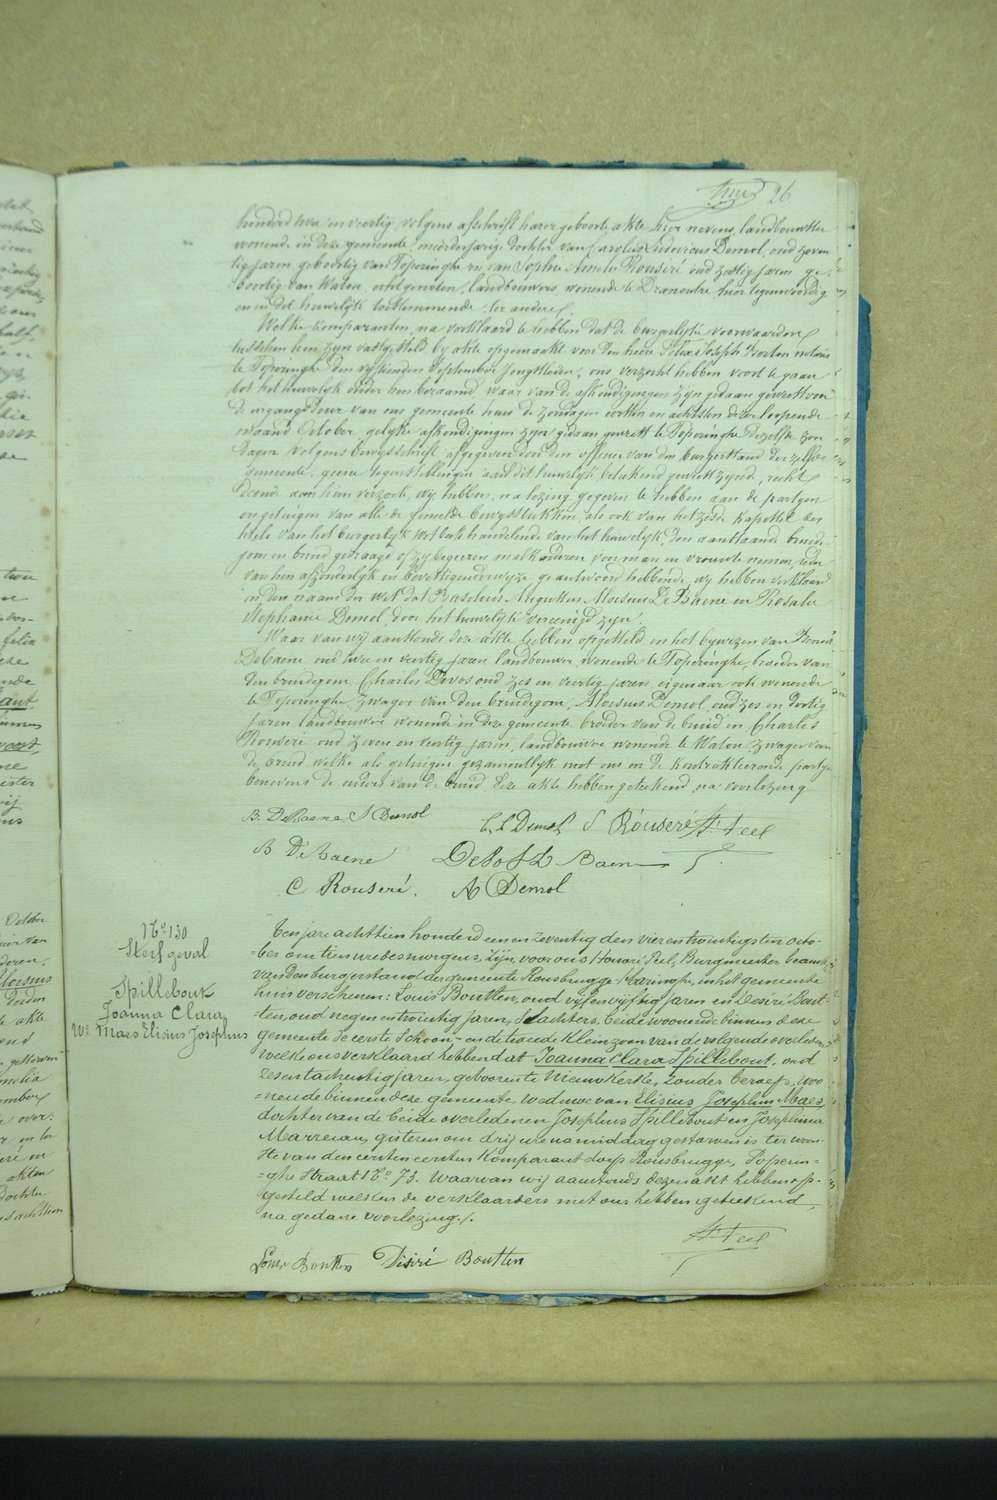 26
honderd twee en veertig, volgens afschrift harer geboorte akte hier nevens, landbouwster
wonende in deze gemeente, meerderjarige dochter van Carolus Ludovicus Demol, oud zeven
tig jaren geboortig van Poperinghe en van Sophie Amelie Rouseré oud zestig jaren ge
boortig van Watou, echtgenoten, landbouwers wonende te Dranoutre hier tegenwoordig
en in dit huwelijk toestemmende ter andere.
Welke komparanten, na verklaard te hebben dat de burgerlijke voorwaarden
tusschen hen zijn vastgesteld bij akte opgemaakt voor den heere Felix Joseph Berten notaris
te Poperinghe den vijftienden September jongstleden, ons verzocht hebben voort te gaan
tot het huwelijk onder hen beraamd waar van de afkondigingen zijn gedaan geweest voor
de ingangsdeur van ons gemeente huis de zondagen eersten en achtsten dezer loopende
maand October gelijke afkondigingen zijn gedaan geweest te Poperinghe dezelfde zon
dagen volgens bewijsschrift afgegeven door den officier van den burgerstand der zelfde
gemeente, geene tegenstellingen aan dit huwelijk beteekend geweest zijnde, recht
doende aan hun verzoek, wij hebben, na lezing gegeven te hebben aan de partijen
en getuigen van alle de gemelde bewijsstukken als ook van het zesde kapittel des
titels van het burgerlijk wetboek handelende van het huwelijk den aanstaande bruide
gom en bruid gevraagd of zij begeeren malkanderen voor man en vrouwe nemen, ieder
van hen afzonderlijk en bevestigender wijze geantwoord hebbende, wij hebben verklaard
in den naam der wet dat Basilius Augustus Aloisius De Baene en Rosalie
Stephanie Demol, door het huwelijk vereenigd zijn.
Waar van wij aanstonds deze akte hebben opgesteld en het bijwezen van Benoi
DeBaene oud twee en veertig jaren landbouwer wonende te Poperinghe, broeder van
den bruidegom, Charles Devos oud zes en veertig jaren eigenaar ook wonende
te Poperinghe, zwager van den bruidegom, Aloisius Demol, oud zes en dertig
jaren landbouwer wonende in deze gemeente broeder van de bruid en Charles
Rouseré oud zeven en veertig jaren, landbouwer wonende te Watou, zwager van
de bruid welke als getuigen gezamentlijk met ons en de kontrakteerende partijen
benevens de ouders van de bruid deze akte hebben geteekend na voorlezing
B. DeBaene S Demol C. L Demol S Rouseré H Peel
B De Baene DeVos L Baene
C Rouseré. A Demol
No 130
Sterfgeval
Spillebout
Joanna Clara,
We Maes Elisius Josephus
Ten jare achttien honderd een en zeventig den vierentwintigsten octo-
=ber om tien ure des morgens, zijn voor ons Honoré Peel, Burgmeester beamte
van den burgerstand der gemeente Rousbrugge Haringhe, in het gemeente
huis verschenen: Louis Boutten, oud vijfenvijftig jaren en Desiré Bout-
=ten, oud negenentwintig jaren, Slachters, beide woonende binnen deze
gemeente de eerste Schoon- en de tweede kleinzoon van de volgende overledene
welke ons verklaard hebben dat Joanna Clara Spillebout, oud
zesentachentig jaren, geboren te Nieuwkerke, zonder beroep, woo
=nende binnen deze gemeente, weduwe van Elisius Josephus Maes,
dochter van de beide overledenen Josephus Spillebout en Josephina
Marreeau, gisteren om drij ure namiddag gestorven is ter woon
ste van den eersten komparant dorp Rousbrugge, Poperin-
=ghe Straat No 73. Waarvan wij aanstonds deze akt hebben op-
gesteld welken de verklaarders met ons hebben geteekend,
na gedane voorlezing./.
H Peel
Louis Boutten Désiré Boutten